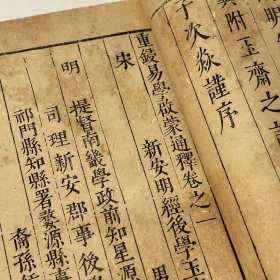 明
其附玉齋之
子次焱謹序
重鋟易學啟蒙通釋卷之一
新安明經後學玉
宋
提督南畿學政前知星
明
司理新安郡事後
祁門縣知縣署婺源縣
裔孫